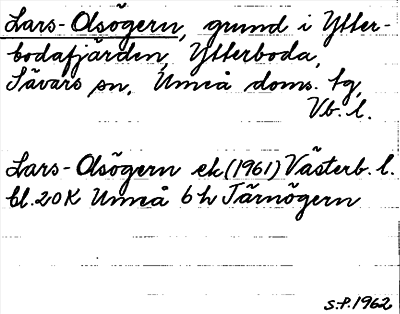 Lars-Olsögern, grund i Ytter-
bodafjärden, Ytterboda,
Sävars sn, Umeå doms. tg,
Vb. l.
Lars-Olsögern ek (1961) Västerb. l.
bl. 20 K Umeå 6 h Tärnögern
S.P. 1962